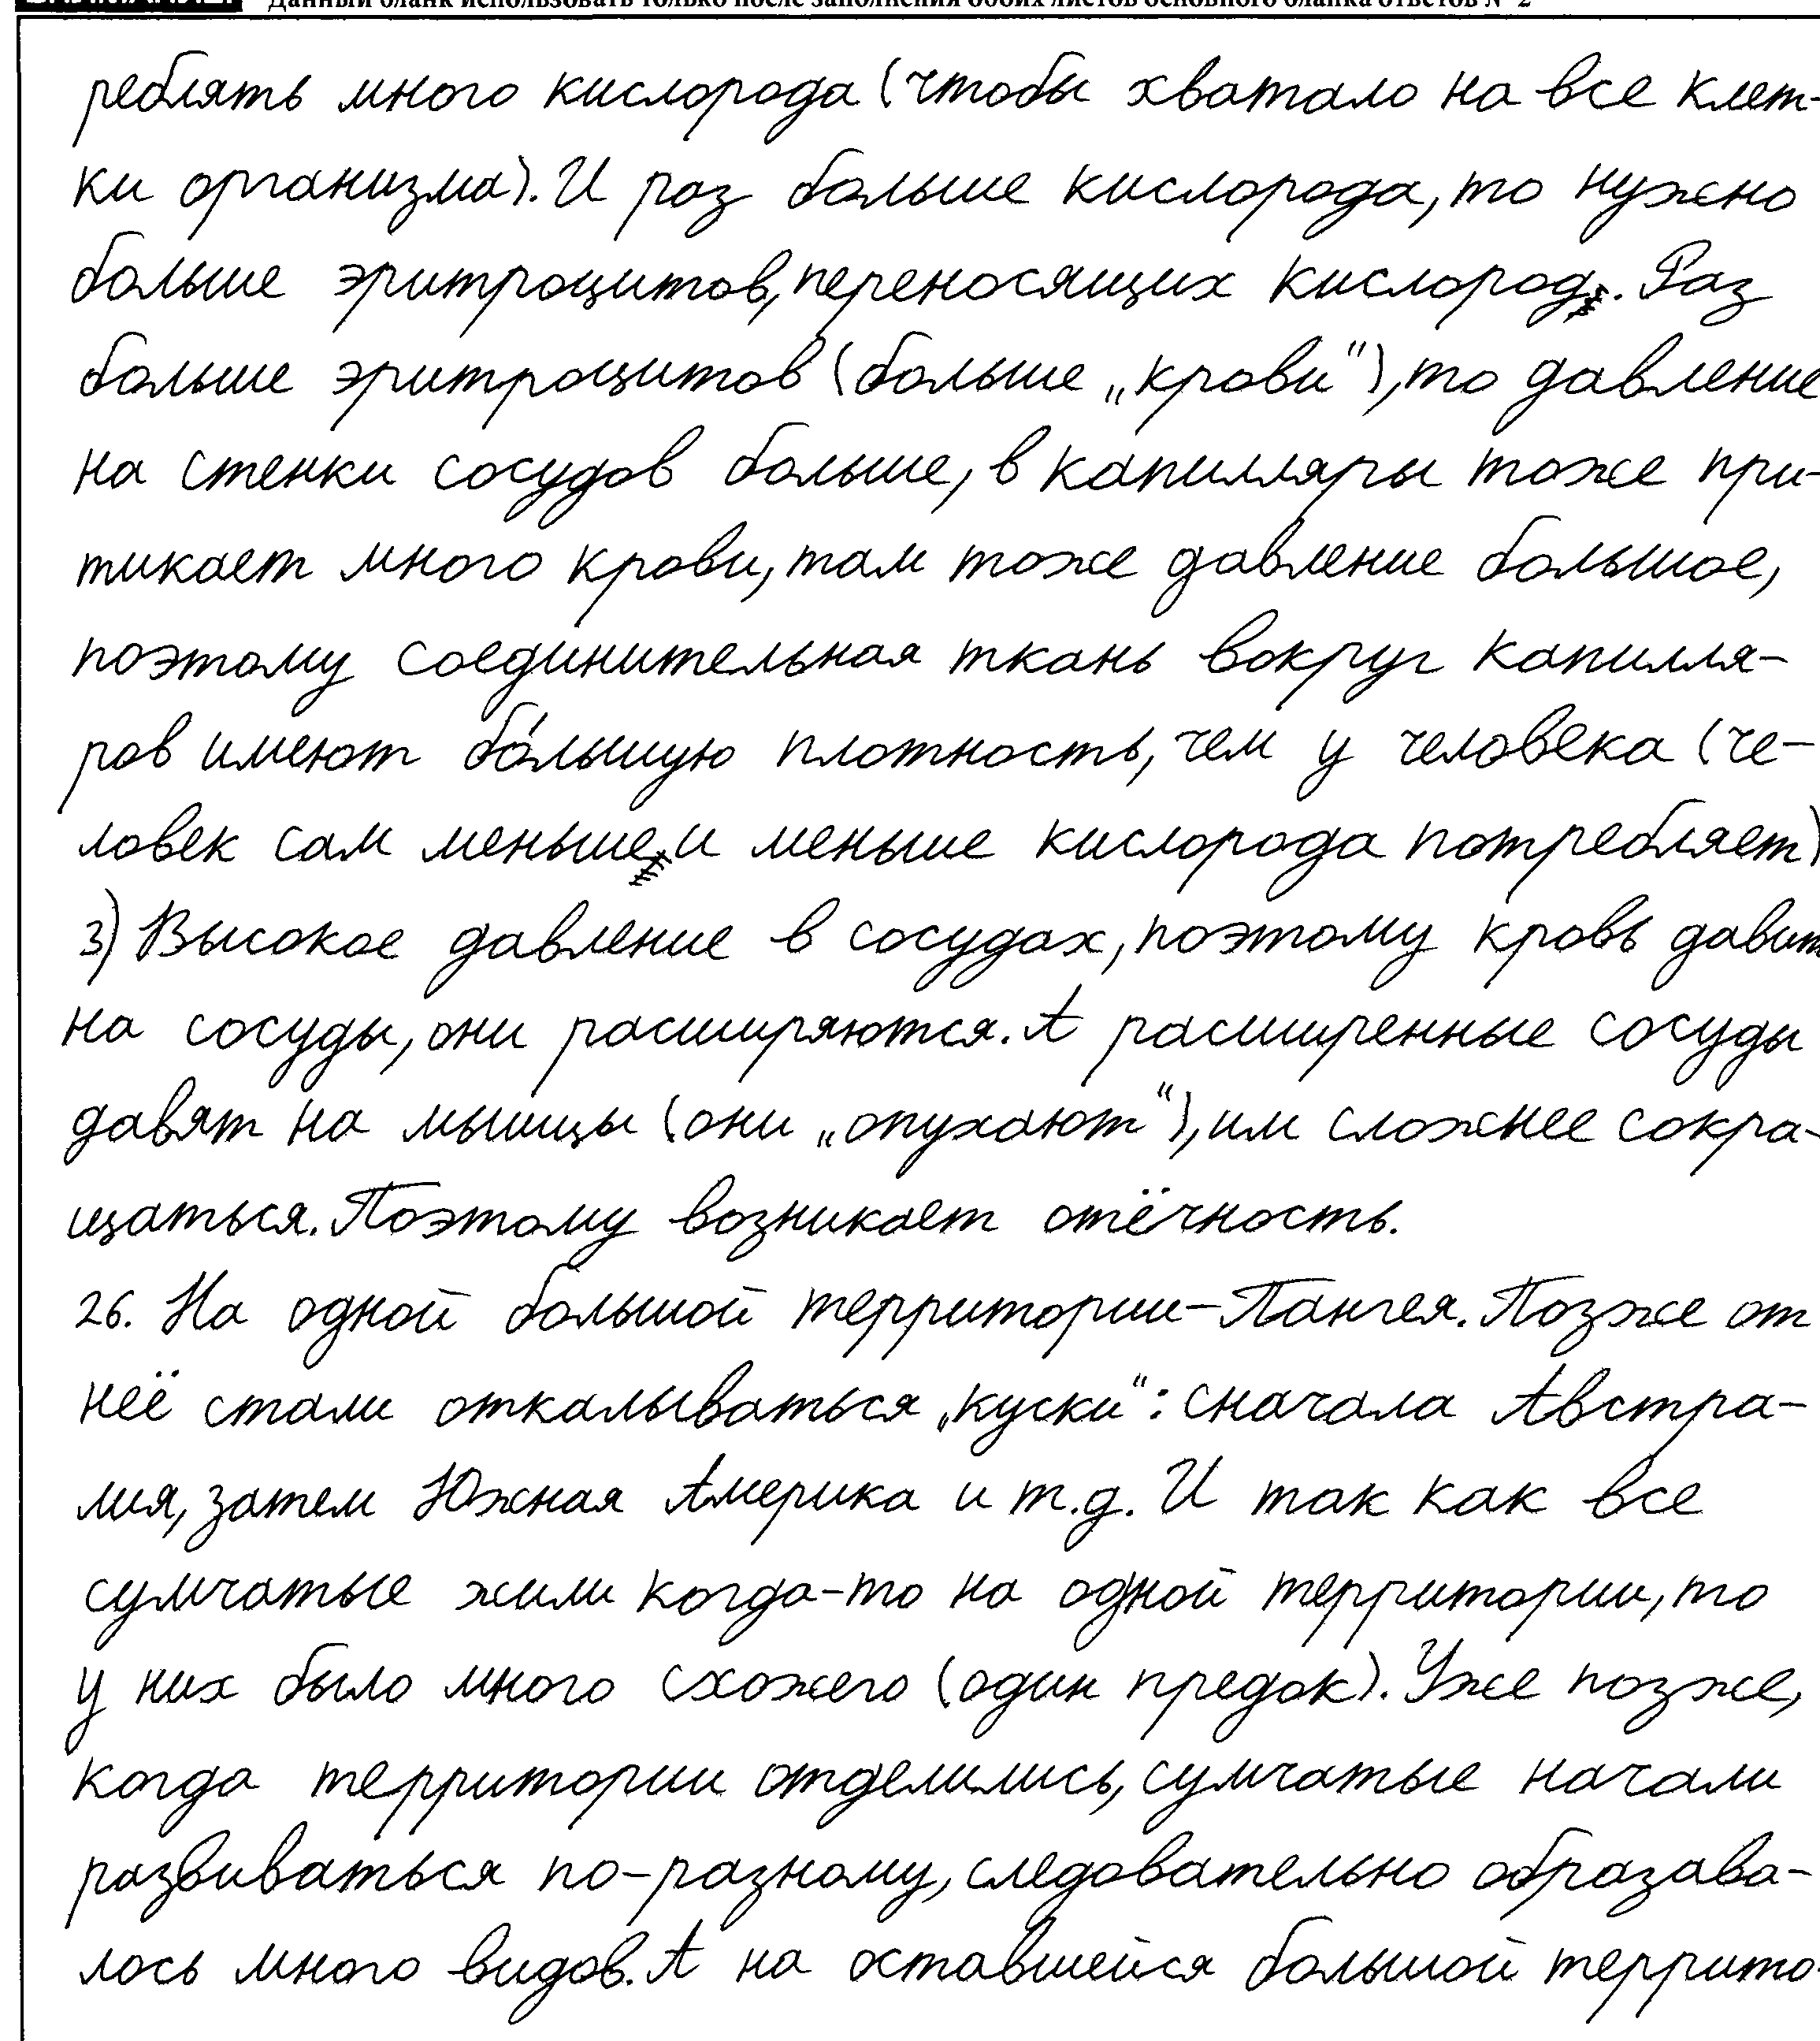 Данный бланк использовать только после заполнения обоих листов основного бланка ответов № 2
реблять много кислорода (чтобы хватало на все клет-
ки организма). И раз больше кислорода, то нужно
больше эритроцитов, переносящих кислород. Раз
больше эритроцитов (больше „крови“), то давление
на стенки сосудов больше, в капилляры тоже при-
тикает много крови, там тоже давление большое,
поэтому соединительная ткань вокруг капилля-
ров имеют бо́льшую плотность, чем у человека (че-
ловек сам меньше и меньше кислорода потребляет)
3) Высокое давление в сосудах, поэтому кровь давит
на сосуды, они расширяются. А расширенные сосуды
давят на мышцы (они „опухают“), им сложнее сокра-
щаться. Поэтому возникает отёчность.
26. На одной большой территории - Пангея. Позже от
неё стали откалываться „куски“: сначала Австра-
лия, затем Южная Америка и т.д. И так как все
сумчатые жили когда-то на одной территории, то
у них было много схожего (один предок). Уже позже,
когда территории отделились, сумчатые начали
развиваться по-разному, следовательно образава-
лось много видов. А на оставшейся большой террито-